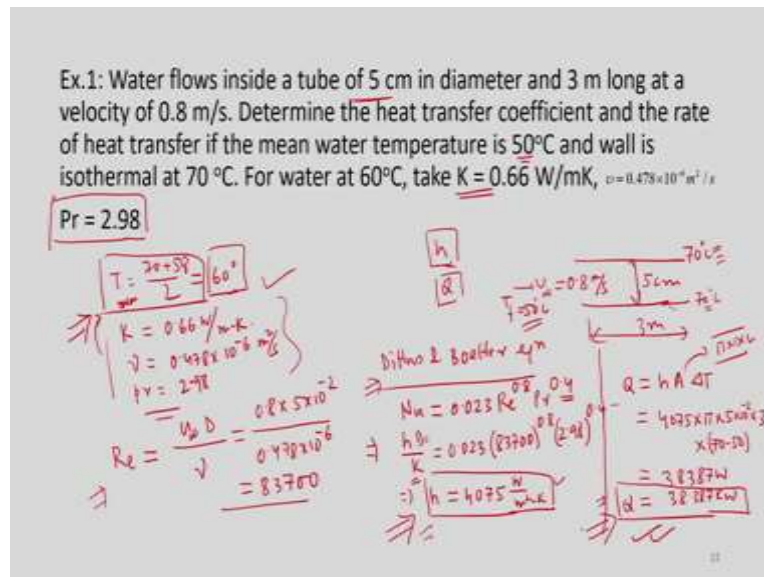 Ex.1: Water flows inside a tube of 5 cm in diameter and 3 m long at a
velocity of 0.8 m/s. Determine the heat transfer coefficient and the rate
of heat transfer if the mean water temperature is 50°C and wall is
isothermal at 70 °C. For water at 60°C, take K = 0.66 W/mK, υ=0.478×10⁻⁶m²/s
Pr = 2.98
T = 70+50/2 = 60°
K = 0.66 W/m-K
ν = 0.478 x 10⁻⁶ m²/s
Pr = 2.98
Re = D/ν = 0.8 x 5x10⁻²/0.478x10⁻⁶
= 83700
h
Q
70°C
= 0.8 m/s
5cm
T=50°C
70°C
3m
Nu = 0.023 Re^0.8 Pr^0.4
⇒ hD/K = 0.023 (83700)^0.8 (2.98)^0.4
⇒ h = 4075
πxDxL
Q = hA ΔT
= 4075xπx5x10⁻²x3
x(70-50)
= 38387W
Q = 38.387KW